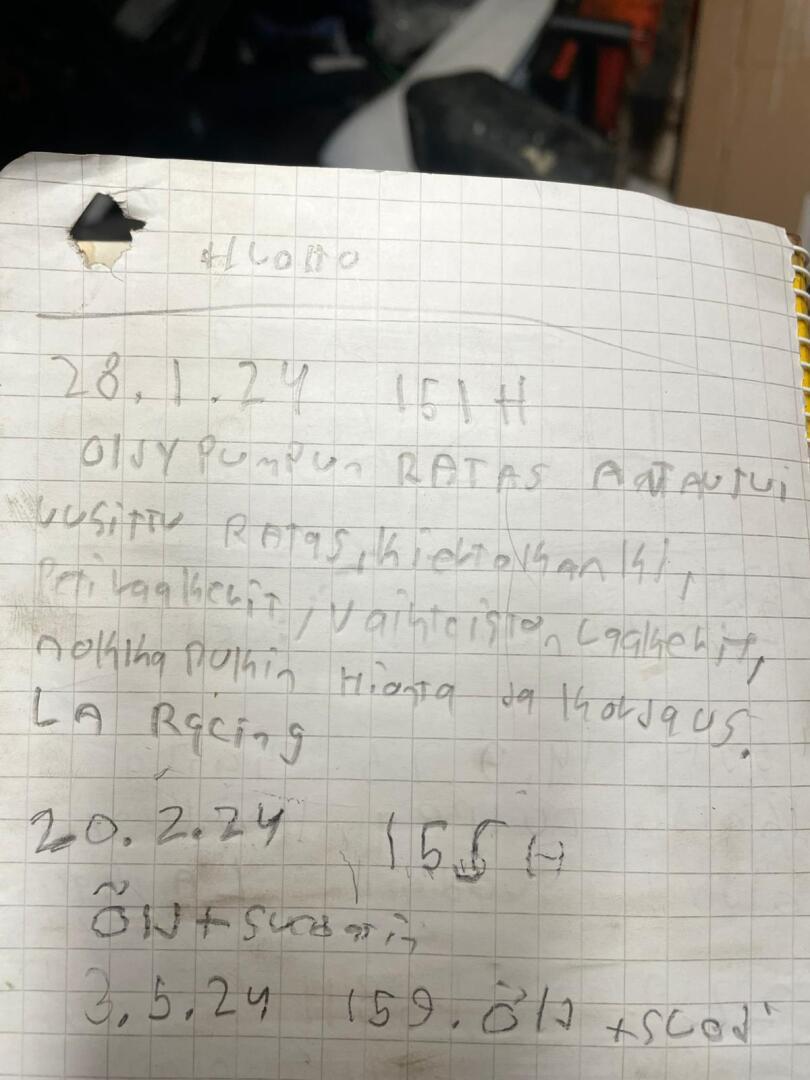 HUOLTO
28.1.24 151H
ÖLJYPUMPUN RATAS ANTAUTUI
UUSITTU RATAS, KIERTOKANKI,
PETILAAKERIT, VAIHTEISTON LAAKERIT,
NOKKA PUKIN HIONTA JA KORJAUS.
LA Racing
20.2.24 155H
ÖLJY+SUODATIN
3.5.24 159. ÖLJ +SUOD